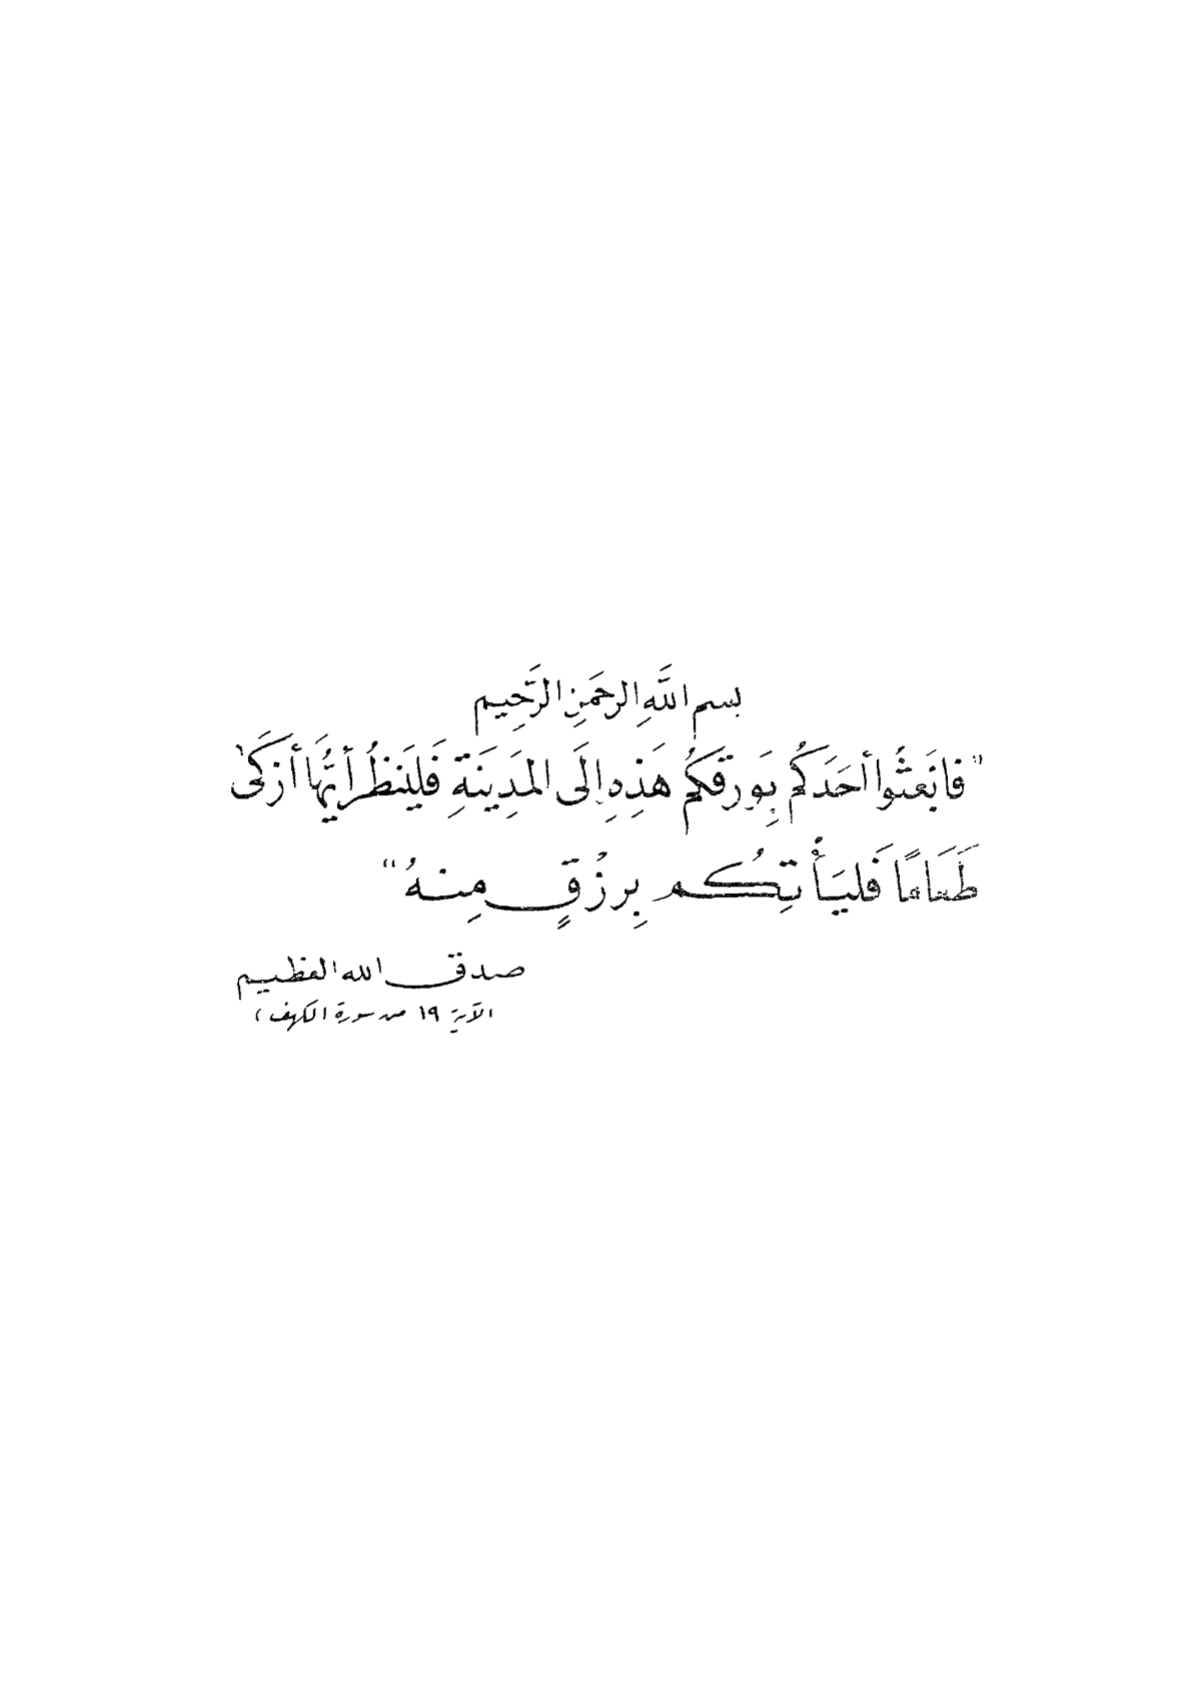 بسم اللَّهِ الرحمَنِ الرَّحِيم
"فابَعثُوا أحَدَكُم بِوَرقَكُم هَذِهِ إلَى المَدِينَةِ فَليَنظُر أيُّهَا أزكَى
طَعَامًا فَليَأْتِكُم بِرزُقٍ مِنهُ"
صدق الله العظيم
الآية ١٩ من سورة الكهف )